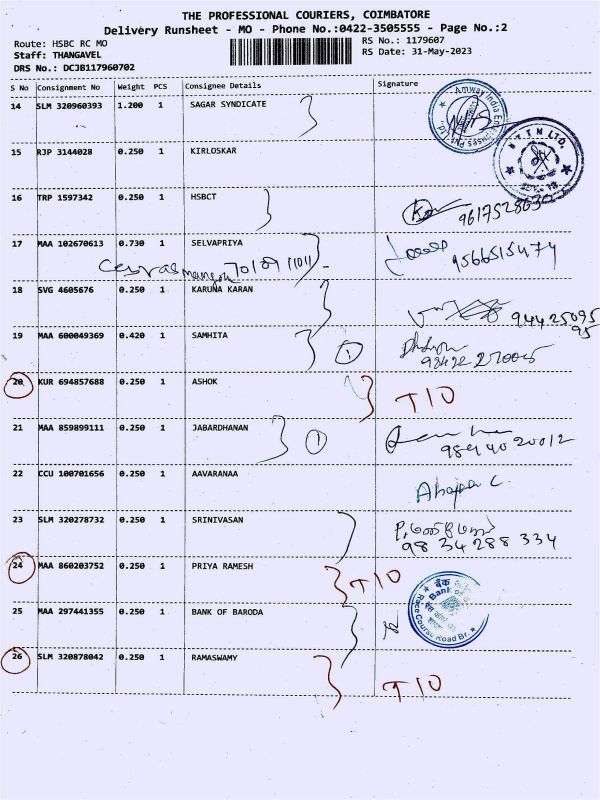 THE PROFESSIONAL COURIERS, COIMBATORE
Delivery Runsheet - MO - Phone No.:0422-3505555 - Page No.:2
Route: HSBC RC MO
Staff: THANGAVEL
DRS No.: DCJB117960702
RS No.: 1179607
RS Date: 31-May-2023
S No Consignment No Weight PCS Consignee Details Signature
14 SLM 320960393 1.200 1 SAGAR SYNDICATE
Amway India Enterprises Pvt. Ltd.
15 RJP 3144028 0.250 1 KIRLOSKAR
LTD.
16 TRP 1597342 0.250 1 HSBCT
17 MAA 102670613 0.730 1 SELVAPRIYA
9566515474
18 SVG 4605676 0.250 1 KARUNA KARAN
94425095
95
19 MAA 600049369 0.420 1 SAMHITA 1
20 KUR 694857688 0.250 1 ASHOK TIO
21 MAA 859899111 0.250 1 JABARDHANAN 1
22 CCU 100701656 0.250 1 AAVARANAA
23 SLM 320278732 0.250 1 SRINIVASAN
98 34 288 334
24 MAA 860203752 0.250 1 PRIYA RAMESH TIO
25 MAA 297441355 0.250 1 BANK OF BARODA
बैंक
Bank of
Race Course Road Br.
26 SLM 320878042 0.250 1 RAMASWAMY TIO